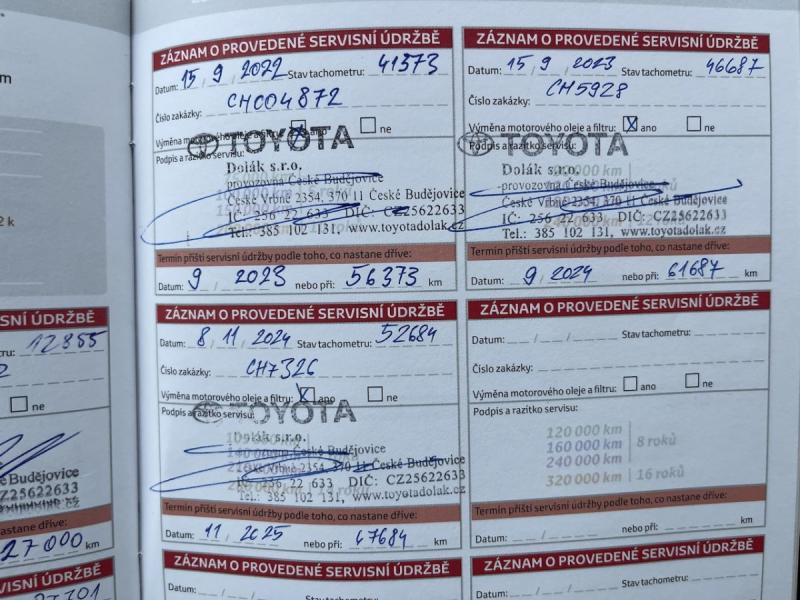 m
2 k
SNÍ ÚDRŽBĚ
ru: 12855
2
ne
é Budějovice
Z25622633
astane dříve:
27000 km
SNÍ ÚDRŽBĚ
ZÁZNAM O PROVEDENÉ SERVISNÍ ÚDRŽBĚ
Datum: 15 9 2022 Stav tachometru: 41373
Číslo zakázky: CHC04872
Výměna motorového oleje a filtru: X ano ne
Podpis a razítko servisu:
TOYOTA
Dolák s.r.o.
provozovna České Budějovice
České Vrbné 2354, 370 11 České Budějovice
IČ: 256 22 633 DIČ: CZ25622633
Tel.: 385 102 131, www.toyotadolak.cz
Termín příští servisní údržby podle toho, co nastane dříve:
Datum: 9 2023 nebo při: 56373 km
ZÁZNAM O PROVEDENÉ SERVISNÍ ÚDRŽBĚ
Datum: 15 9 2023 Stav tachometru: 46687
Číslo zakázky: CH5928
Výměna motorového oleje a filtru: X ano ne
Podpis a razítko servisu:
TOYOTA
Dolák s.r.o.
provozovna České Budějovice
České Vrbné 2354, 370 11 České Budějovice
IČ: 256 22 633 DIČ: CZ25622633
Tel.: 385 102 131, www.toyotadolak.cz
Termín příští servisní údržby podle toho, co nastane dříve:
Datum: 9 2024 nebo při: 61687 km
ZÁZNAM O PROVEDENÉ SERVISNÍ ÚDRŽBĚ
Datum: 8 11 2024 Stav tachometru: 52684
Číslo zakázky: CH7326
Výměna motorového oleje a filtru: X ano ne
Podpis a razítko servisu:
TOYOTA
Dolák s.r.o.
provozovna České Budějovice
České Vrbné 2354, 370 11 České Budějovice
IČ: 256 22 633 DIČ: CZ25622633
Tel.: 385 102 131, www.toyotadolak.cz
Termín příští servisní údržby podle toho, co nastane dříve:
Datum: 11 2025 nebo při: 67684 km
ZÁZNAM O PROVEDENÉ SERVISNÍ ÚDRŽBĚ
Datum: Stav tachometru:
Číslo zakázky:
Výměna motorového oleje a filtru: ano ne
Podpis a razítko servisu:
120 000 km
160 000 km 8 roků
240 000 km
320 000 km 16 roků
Termín příští servisní údržby podle toho, co nastane dříve:
Datum: nebo při: km
ZÁZNAM O PROVEDENÉ SERVISNÍ ÚDRŽBĚ
Datum: Stav tachometru:
ZÁZNAM O PROVEDENÉ SERVISNÍ ÚDRŽBĚ
Stav tachometru: